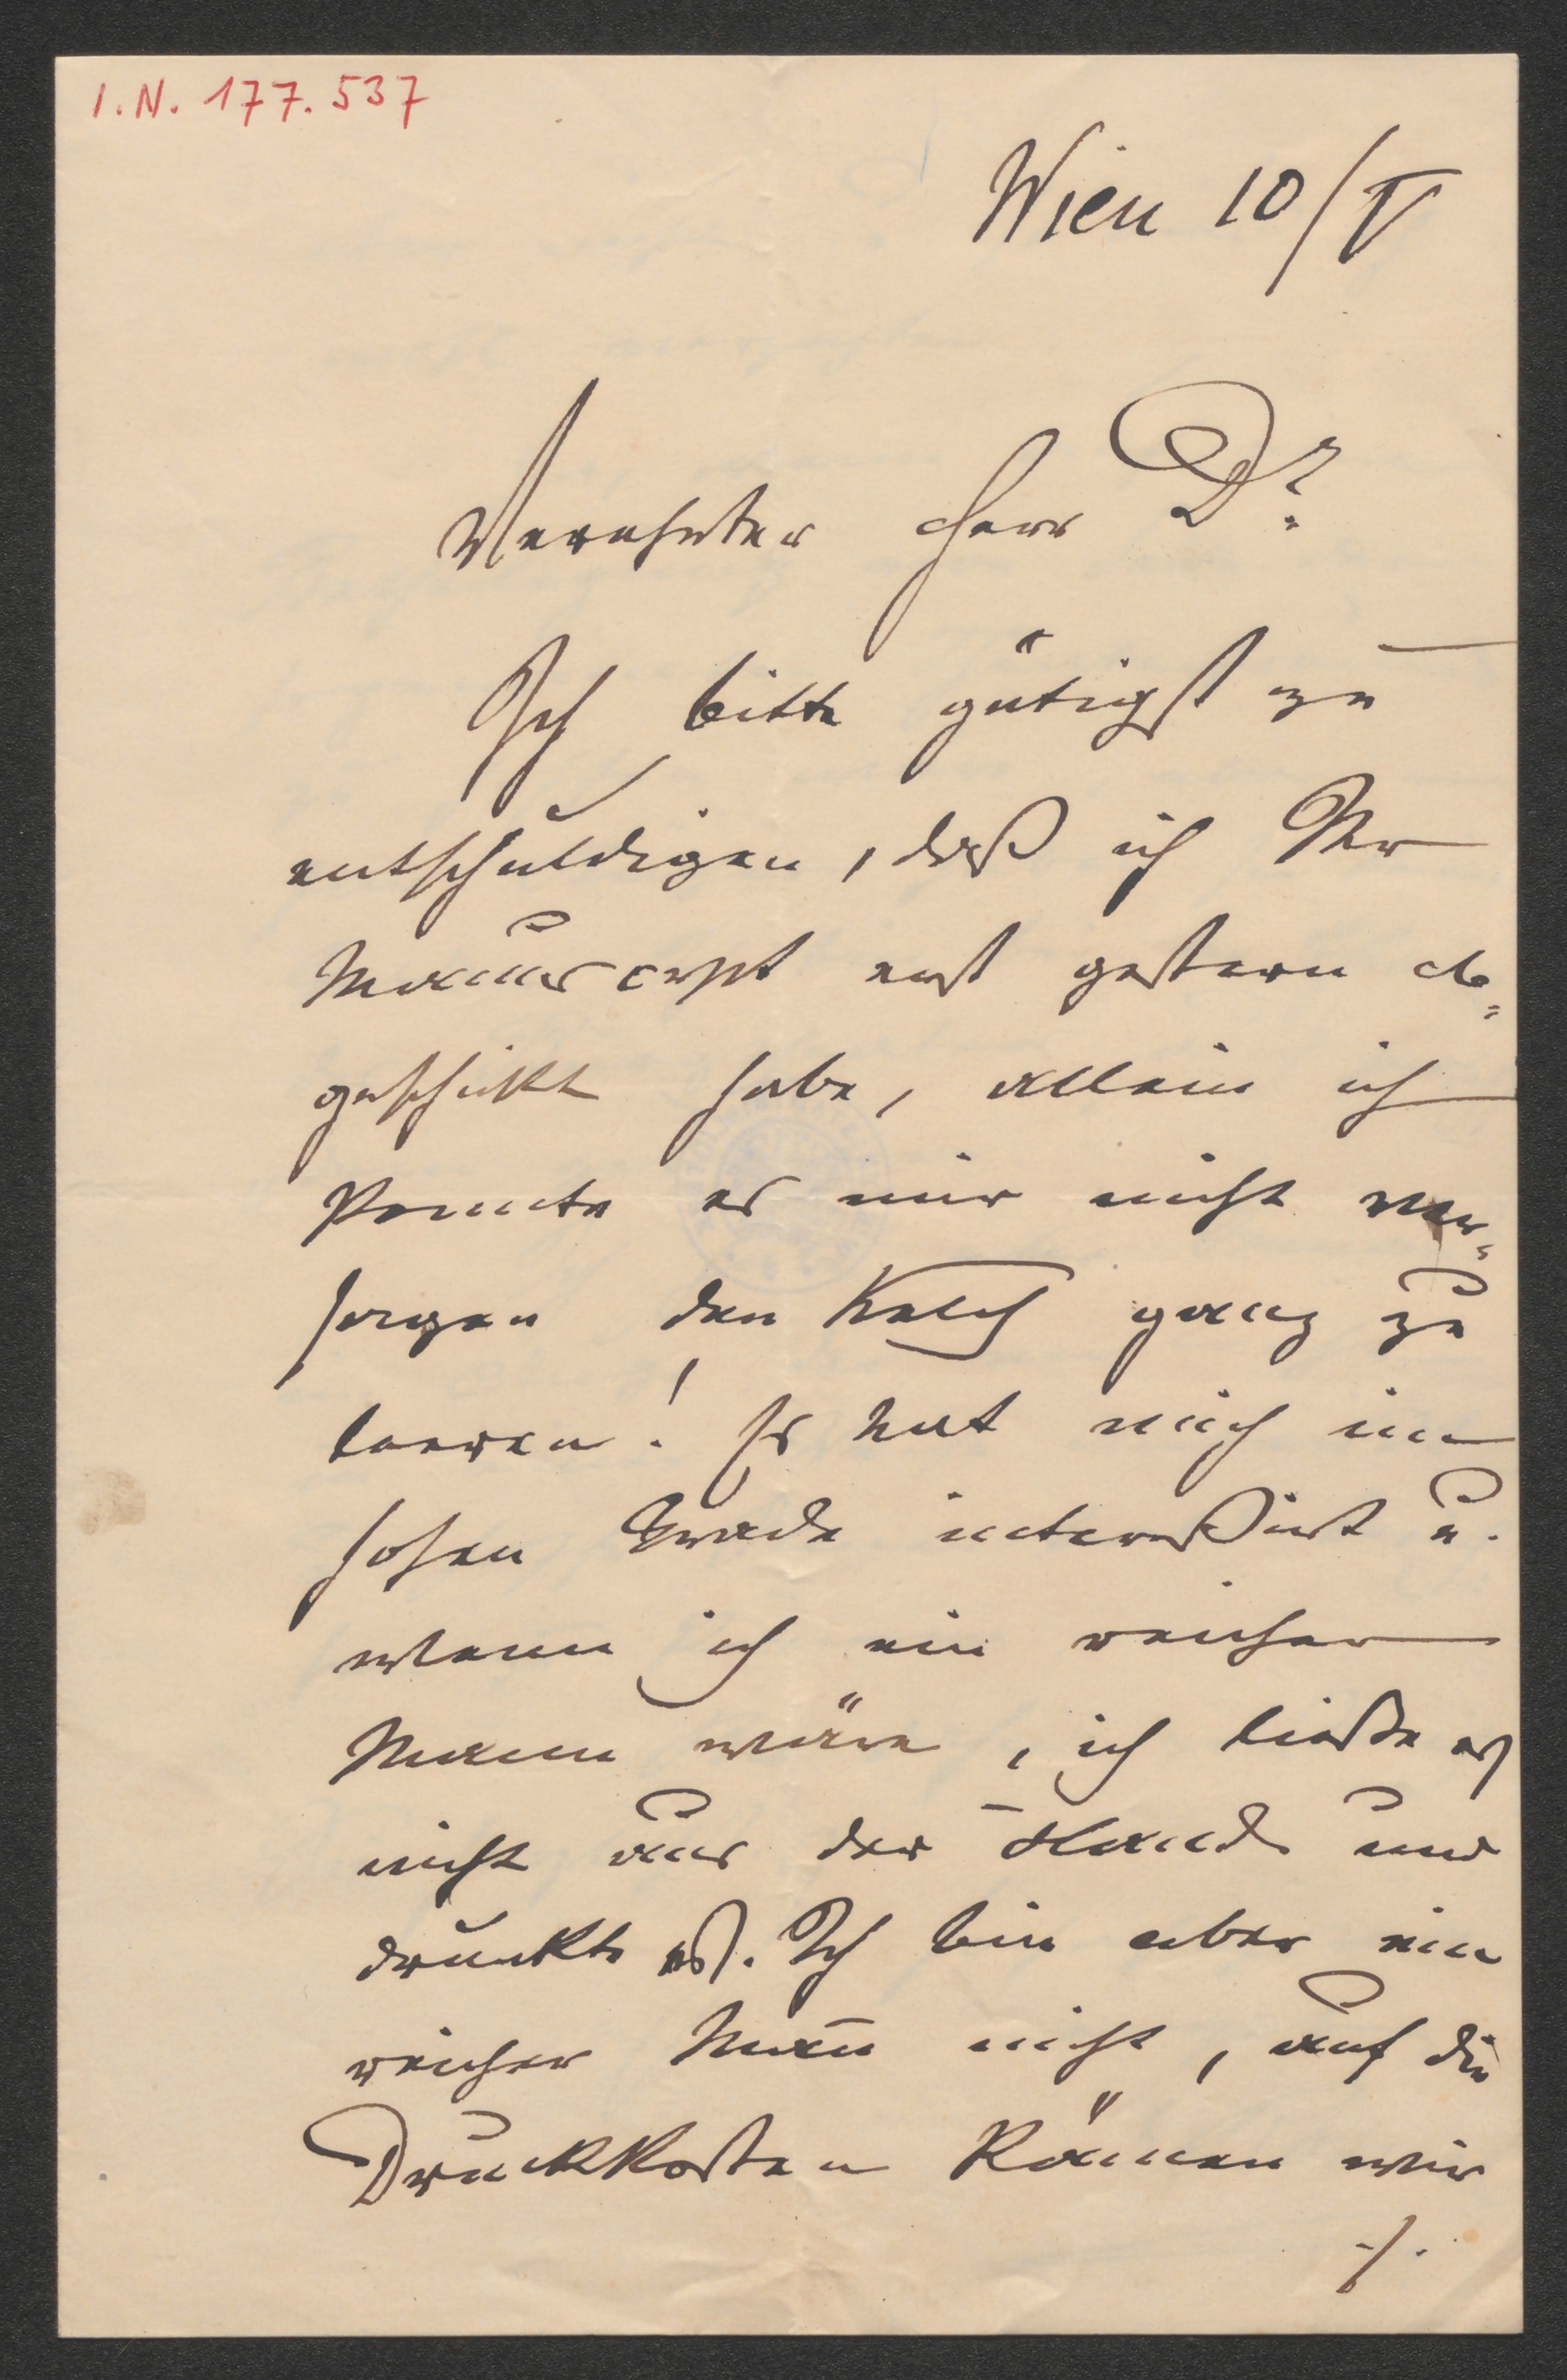 I.N. 177.537
Wien 10/V
Verehrter Herr Dr.
Ich bitte gütigst zu
entschuldigen, daß ich Ihr
Manuscript erst gestern ab=
geschikt habe, allein ich
konnte es mir nicht ver=
sagen den Kelch ganz zu
leeren! Es hat mich im
hohen Grade interessirt u.
wenn ich ein reicher
Mann wäre, ich ließe es
nicht aus der Hand und
druckte es. Ich bin aber ein
reicher Man̅ nicht, auf die
Druckkosten kämen wir
./.